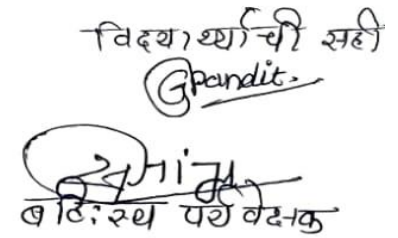 विदयार्थ्याची सही
GPandit.
बहि:स्थ पर्यवेक्षक